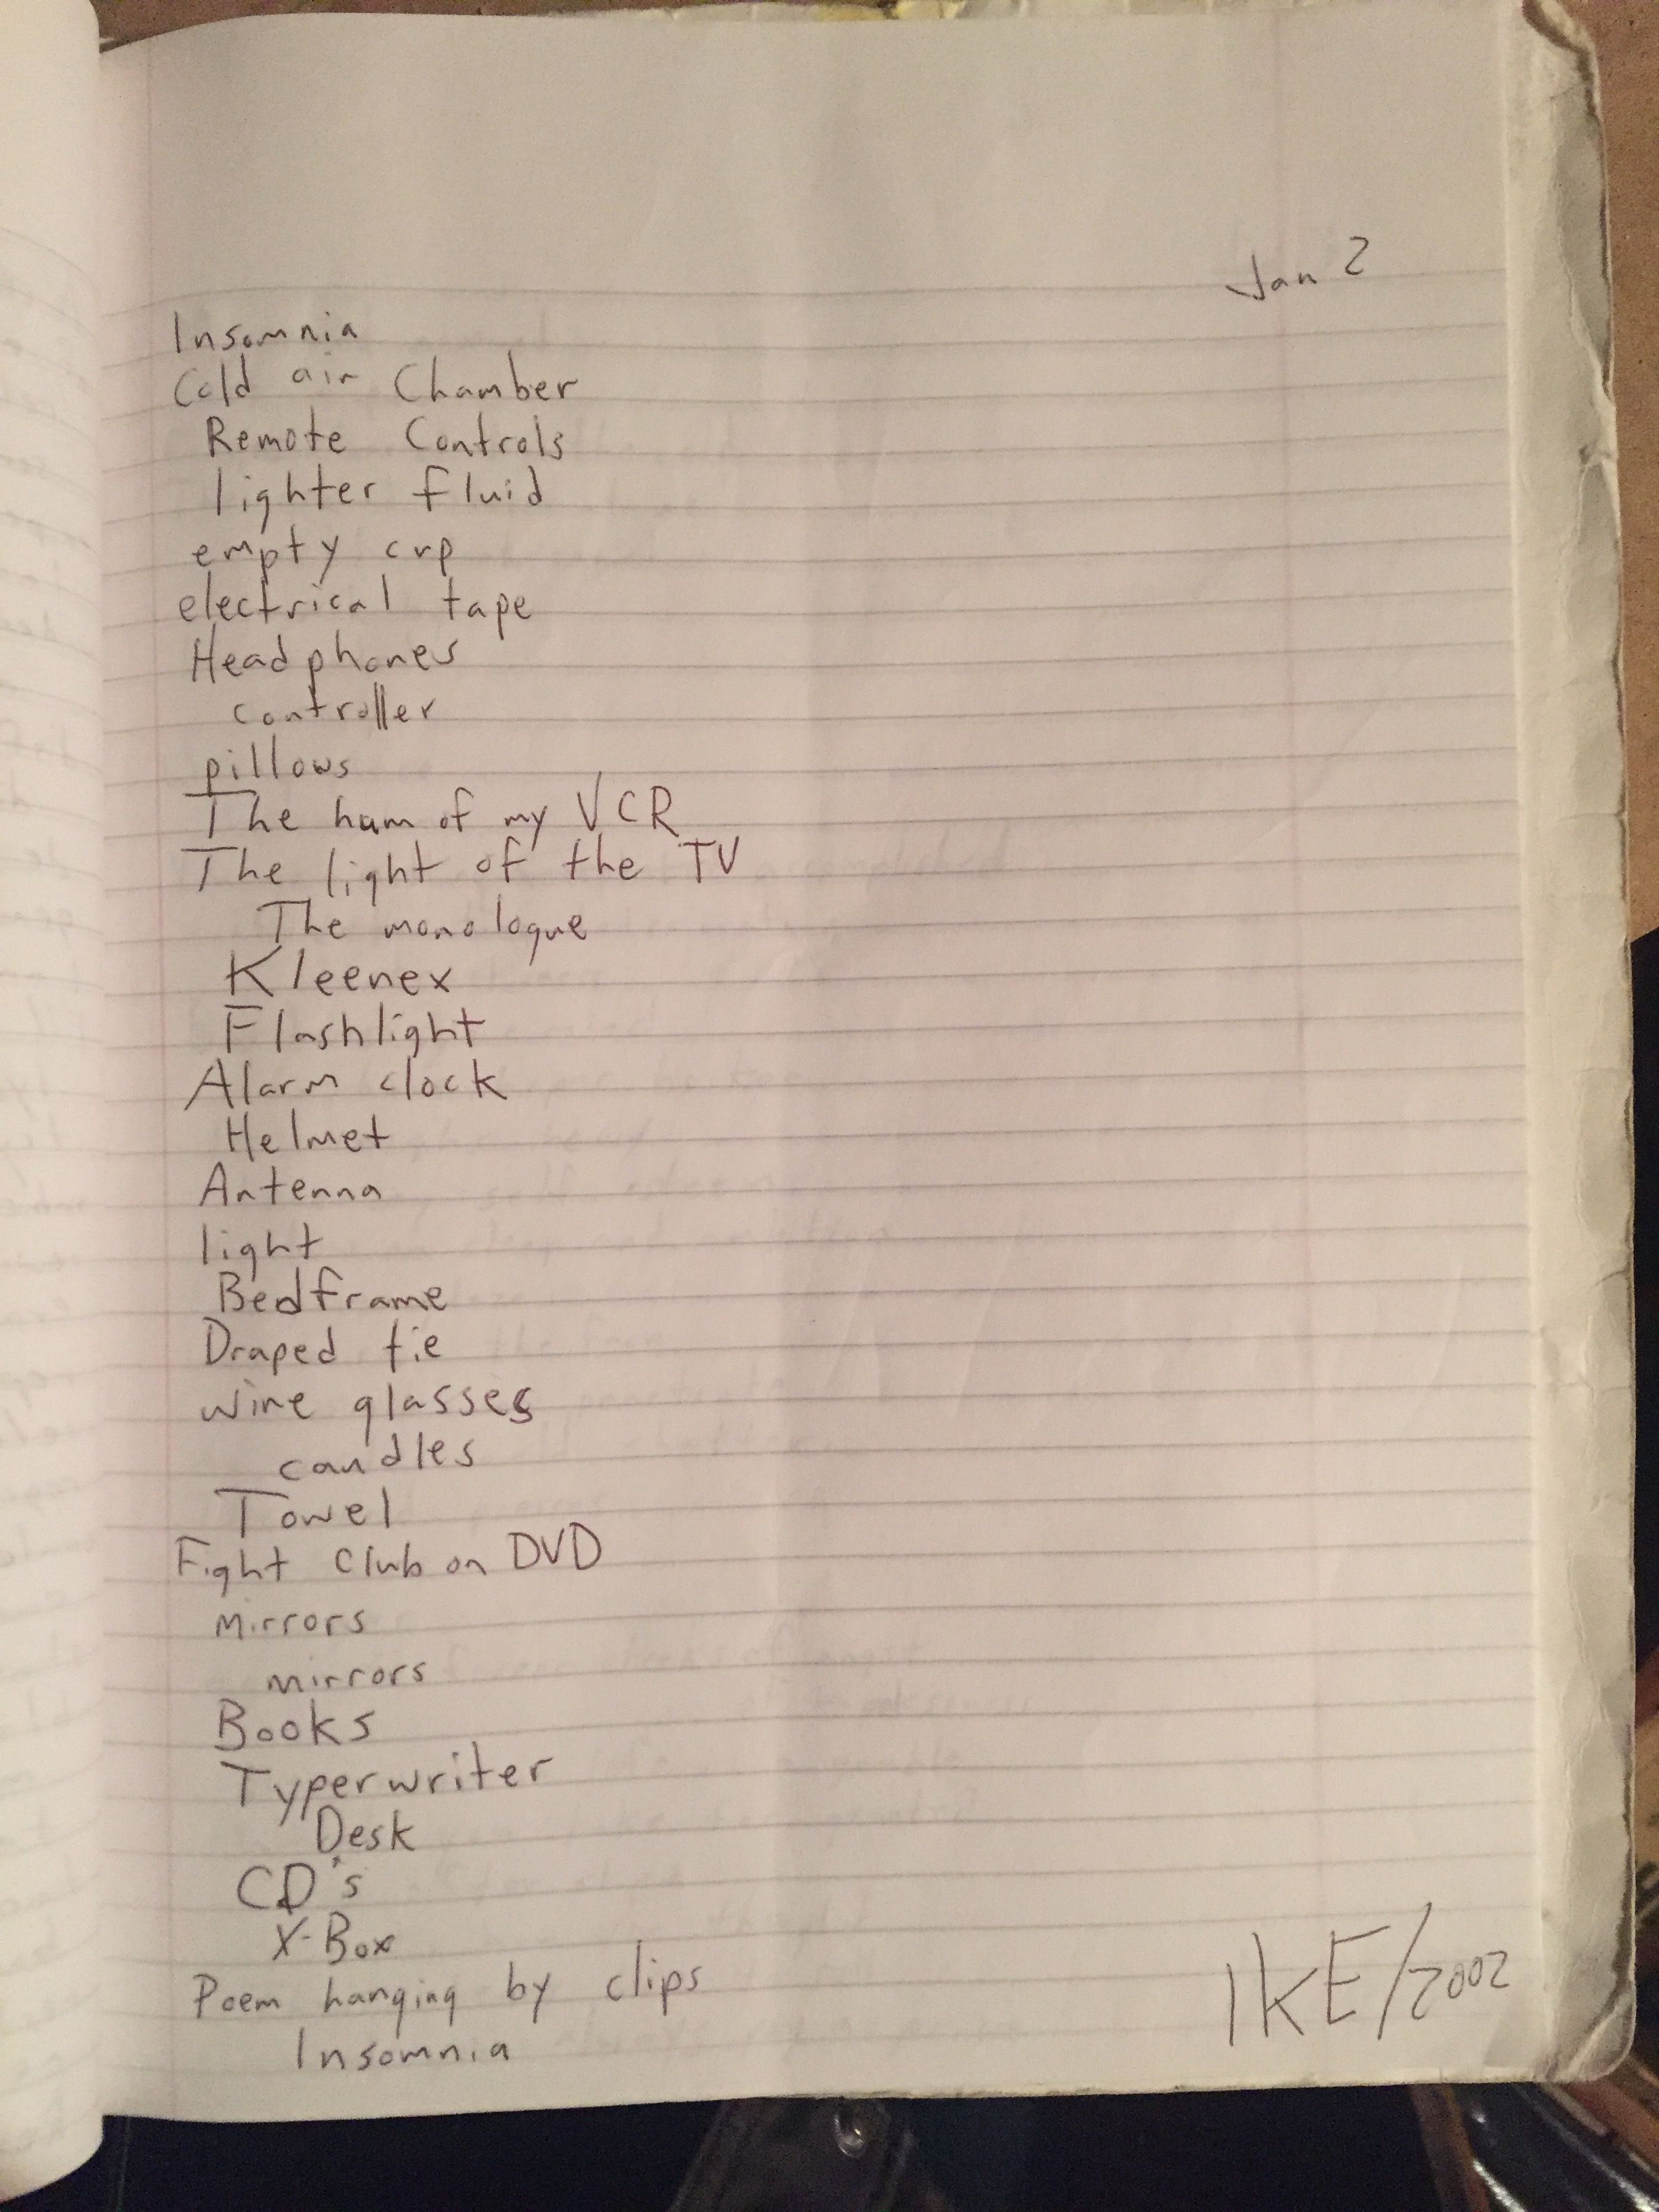 Jan 2
Insomnia
Cold air Chamber
Remote Controls
lighter fluid
empty cup
electrical tape
Headphones
controller
pillows
The hum of my VCR
The light of the TV
The monologue
Kleenex
Flashlight
Alarm clock
Helmet
Antenna
light
Bedframe
Draped tie
wine glasses
candles
Towel
Fight Club on DVD
Mirrors
mirrors
Books
Typerwriter
Desk
CD's
X-Box
Poem hanging by clips
Insomnia
IKE/2002